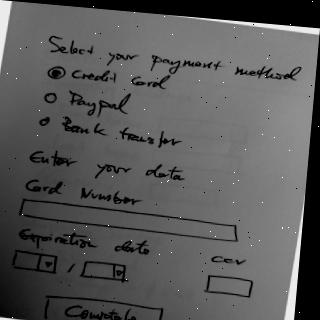 Select your payment method
Credit Card
Paypal
Bank transfer
Enter your data
Card Number
Expiration date
CCV
/
Complete